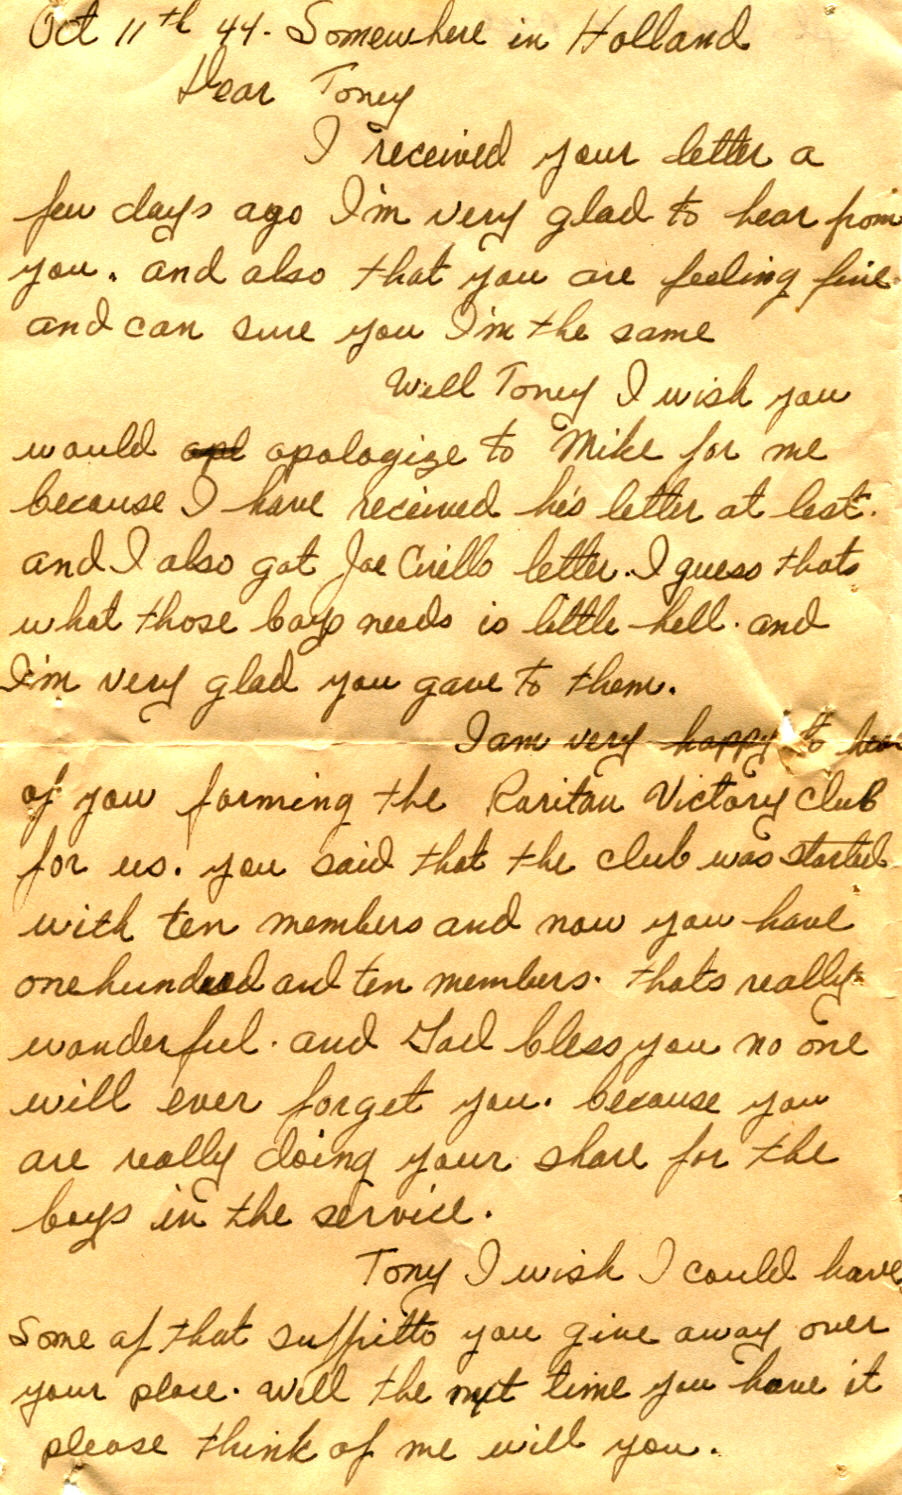 Oct 11th 44. Somewhere in Holland
Dear Toney
I received your letter a
few days ago I'm very glad to hear from
you. and also that you are feeling fine
and can sure you I'm the same
Well Toney I wish you
would apl apologize to Mike for me
because I have received he's letter at last.
and I also got Joe Cirello letter. I guess thats
what those boys needs is little hell. and
I'm very glad you gave to them.
I am very happy to hear
of you forming the Raritan Victory Club
for us. you said that the club was started
with ten members and now you have
one hundred and ten members. thats really
wonderful. and God bless you no one
will ever forget you. because you
are really doing your share for the
boys in the service.
Tony I wish I could have
Some of that suffritto you give away over
your place. Will the next time you have it
please think of me will you.